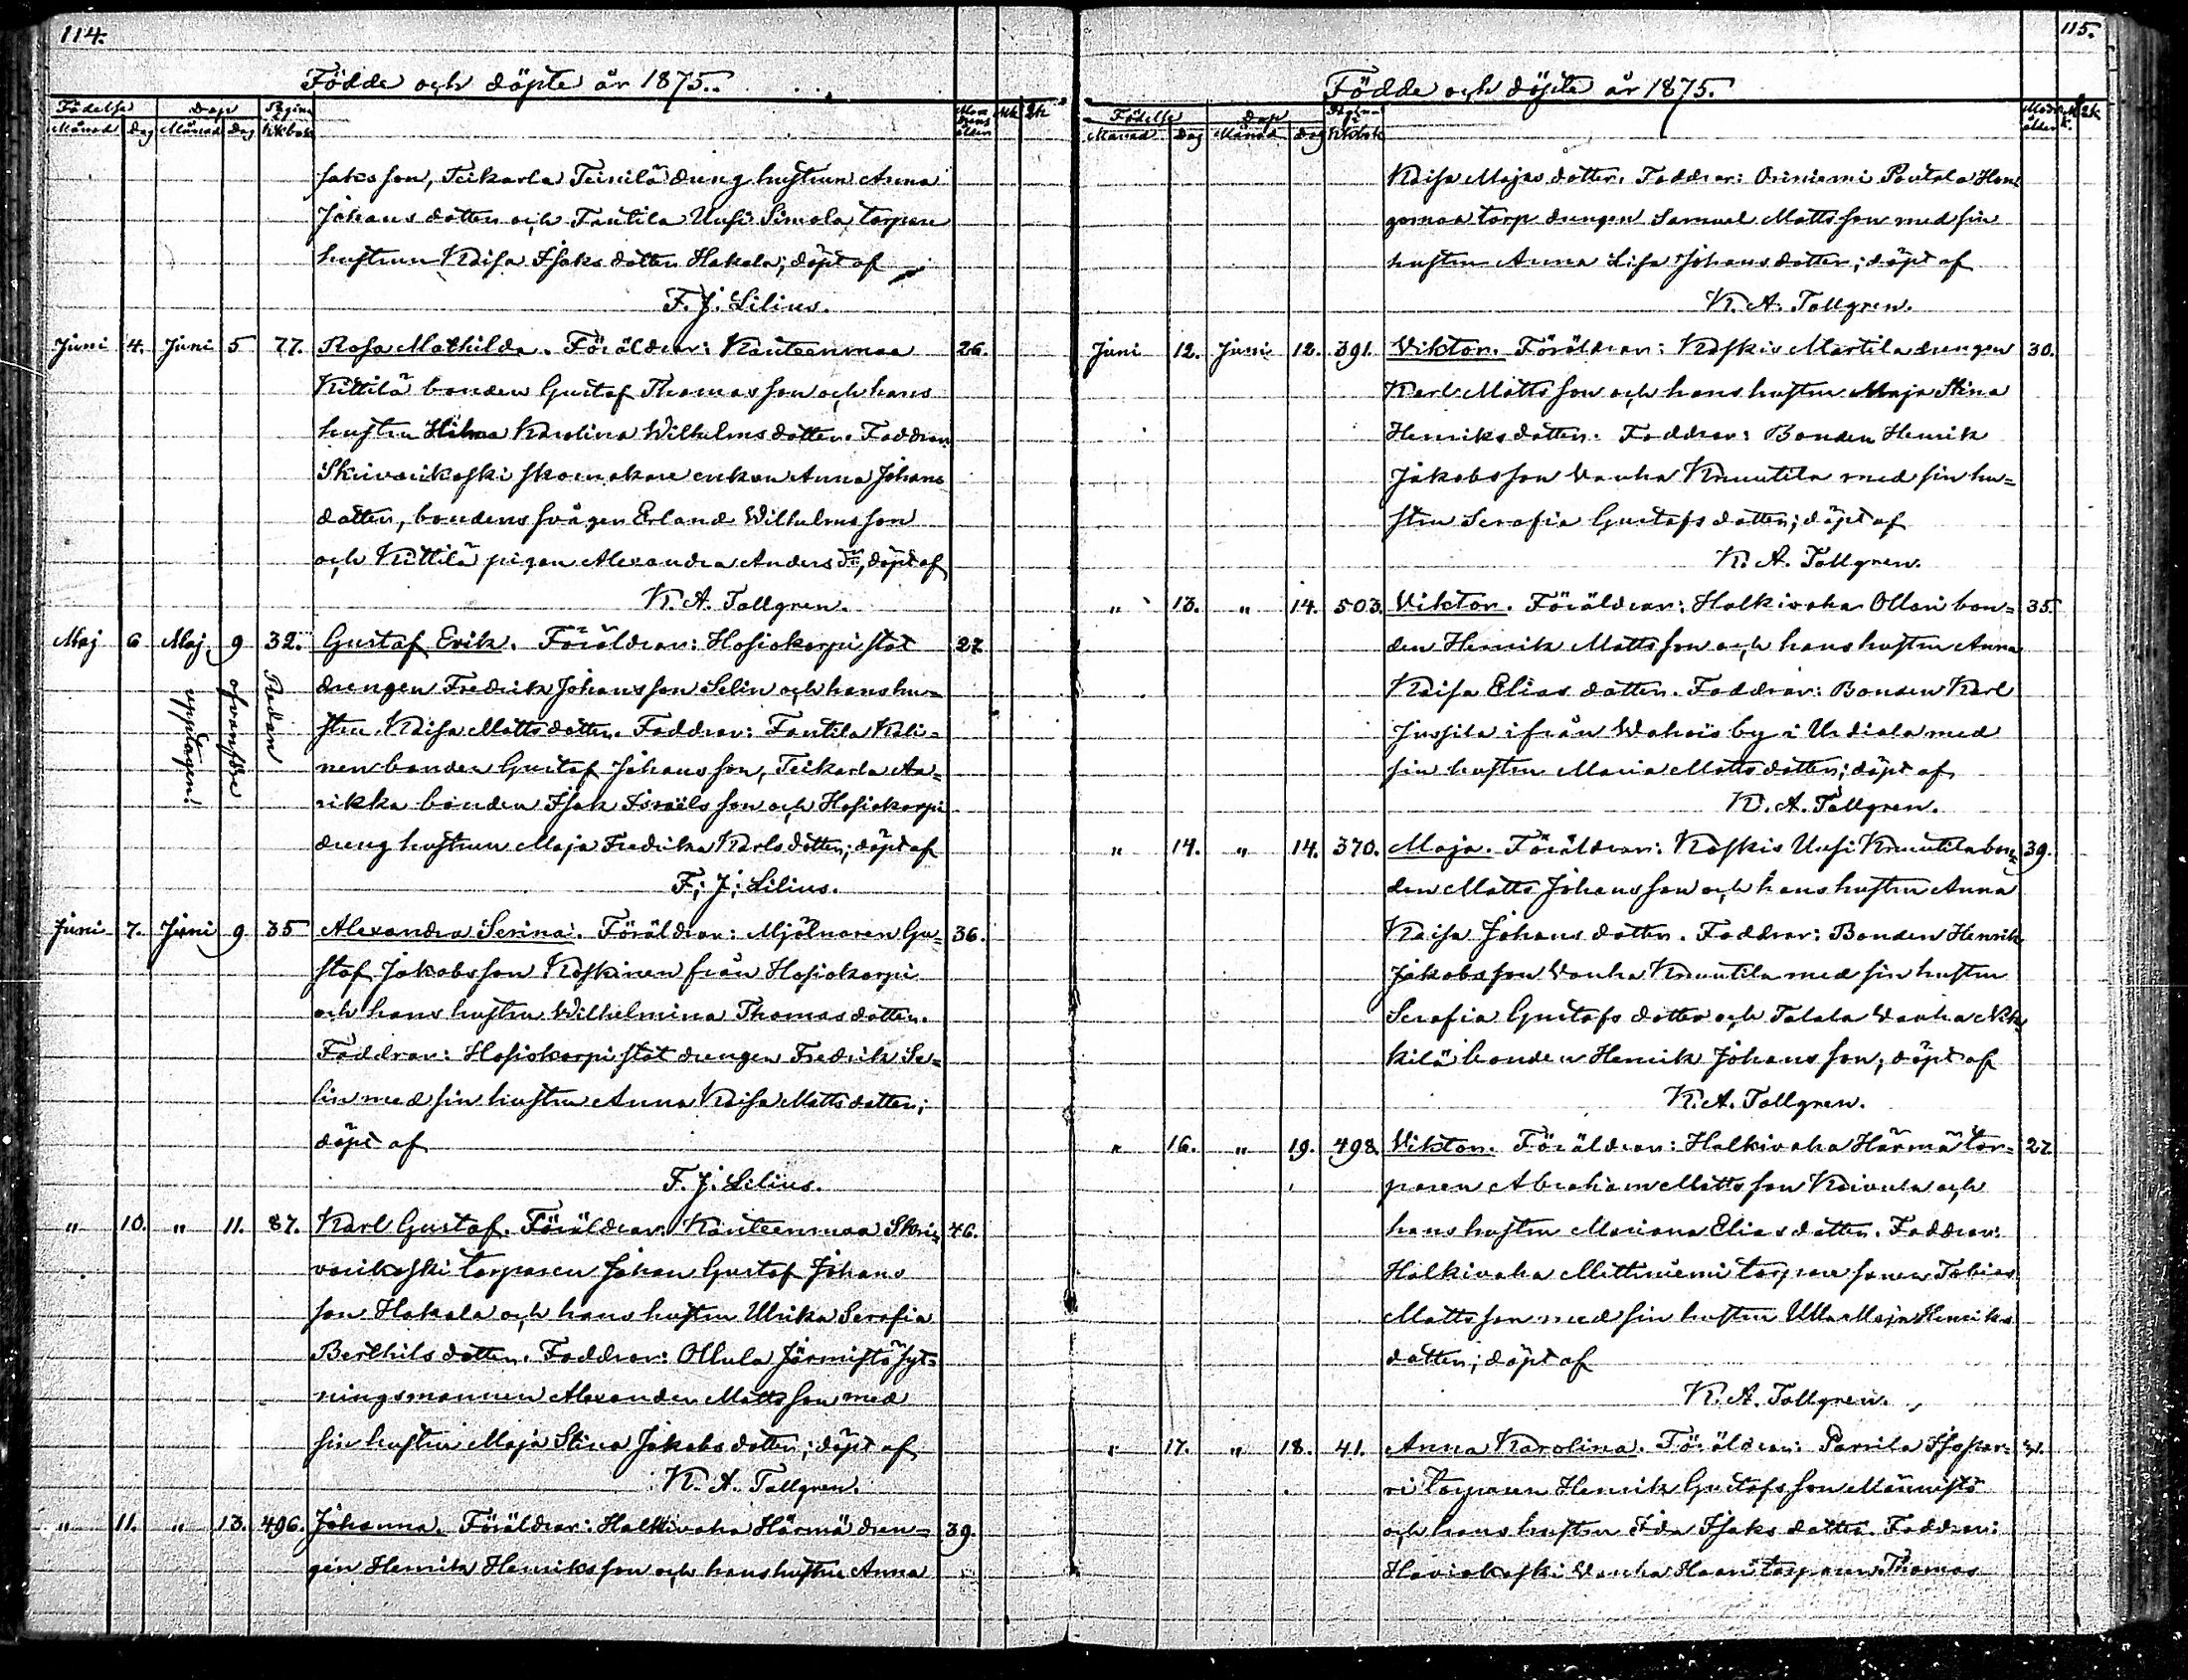 114.
Födde och döpte år 1875.
Födelse Dop Pagina
Månad dag Månad dag Kkbok Modrens ålder Mk Qk
saksson, Teikarla Teinilä dräng hustrun Anna
Johansdotter och Tantila Uusi Simola torpare
hustrun Kaisa Isaksdotter Hakala; döpt af
F. J. Lilius.
Juni 4. Juni 5 77. Rosa Mathilda. Föräldrar: Kanteenmaa 26.
Kittilä bonden Gustaf Thomasson och hans
hustru Hilma Karolina Wilhelmsdotter. Faddrar
Skrivarikoski skomakare enkan Anna Johans
dotter, bondens svågen Erland Wilhelmsson
och Kittilä pigan Alexandra Anders dr, döpt af
K. A. Tallgren.
Maj 6 Maj 9 32. Gustaf Erik. Föräldrar: Hosiokorpi stat 27
Redan ofvanföre upptagen!
drengen Fredrik Johansson Selin och hans hu=
stru Kaisa Mattsdotter. Faddrar: Tantila Kali=
nen bonden Gustaf Johansson, Teikarla Aa=
rikka bonden Isak Israelsson och Hosiokorpi
dreng hustrun Maja Fredrika Karlsdotter; döpt af
F. J. Lilius.
Juni 7. Juni 9 35 Alexandra Serina. Föräldrar: Mjölnaren Gu= 36.
staf Jakobsson Koskinen från Hosiokorpi
och hans hustru Wilhelmina Thomasdotter.
Faddrar: Hosiokorpi stat drengen Fredrik Se=
lin med sin hustru Anna Kaisa Mattsdotter;
döpt af
F. J. Lilius.
" 10. " 11. 87. Karl Gustaf. Föräldrar: Kanteenmaa Skri= 46.
varikoski torparen Johan Gustaf Johans
son Hakala och hans hustru Ulrika Serafia
Berthilsdotter. Faddrar: Ollula Järmistö syt=
ningsmannen Alexander Mattsson med
sin hustru Maja Stina Jakobsdotter; döpt af
K. A. Tallgren.
" 11. " 13. 496. Johanna. Föräldrar: Halkivaha Härmä dren= 39.
gen Henrik Henriksson och hans hustru Anna
115.
Födde och döpte år 1875.
Födelse Dop Pagina
Månad dag Månad dag Kkbok Modr. ålder Mk. Qk.
Kaisa Majasdotter. Faddrar: Oriniemi Pautola Hon
gonoa torp drengen Samuel Mattsson med sin
hustru Anna Lisa Johansdotter; döpt af
K. A. Tallgren.
Juni 12. Juni 12. 391. Viktor. Föräldrar: Koskis Martila drengen 30.
Karl Mattsson och hans hustru Maja Stina
Henriksdotter. Faddrar: Bonden Henrik
Jakobsson Vanha Knuutila med sin hu=
stru Serafia Gustafsdotter; döpt af
K. A. Tallgren.
" 13. " 14. 503. Viktor. Föräldrar: Halkivaha Ollari bon= 35.
den Henrik Mattsson och hans hustru Anna
Kaisa Eliasdotter. Faddrar: Bonden Karl
Jussila ifrån Wahois by i Urdiala med
sin hustru Maria Mattsdotter; döpt af
K. A. Tallgren.
" 14. " 14. 370. Maja. Föräldrar: Koskis Uusi Knuutila bon= 39.
den Matts Johansson och hans hustru Anna
Kaisa Johansdotter. Faddrar: Bonden Henrik
Jakobsson Vanha Knuutila med sin hustru
Serafia Gustafsdotter och Talala Vanha Nik
kilä bonden Henrik Johansson; döpt af
K. A. Tallgren.
" 16. " 19. 498. Viktor. Föräldrar: Halkivaha Härmä tor= 27
paren Abraham Mattsson Koivula och
hans hustru Mariana Eliasdotter. Faddrar:
Halkivaha Mettiniemi torparesonen Tobias
Mattsson med sin hustru Ulla Maja Henriks
dotter; döpt af
K. A. Tallgren.
" 17. " 18. 41. Anna Karolina. Föräldrar: Parsila Isoper= 31.
ri torparen Henrik Gustafsson Männistö
och hans hustru Ida Isaksdotter. Faddrar:
Haviokoski Vanha Haari torparen Thomas